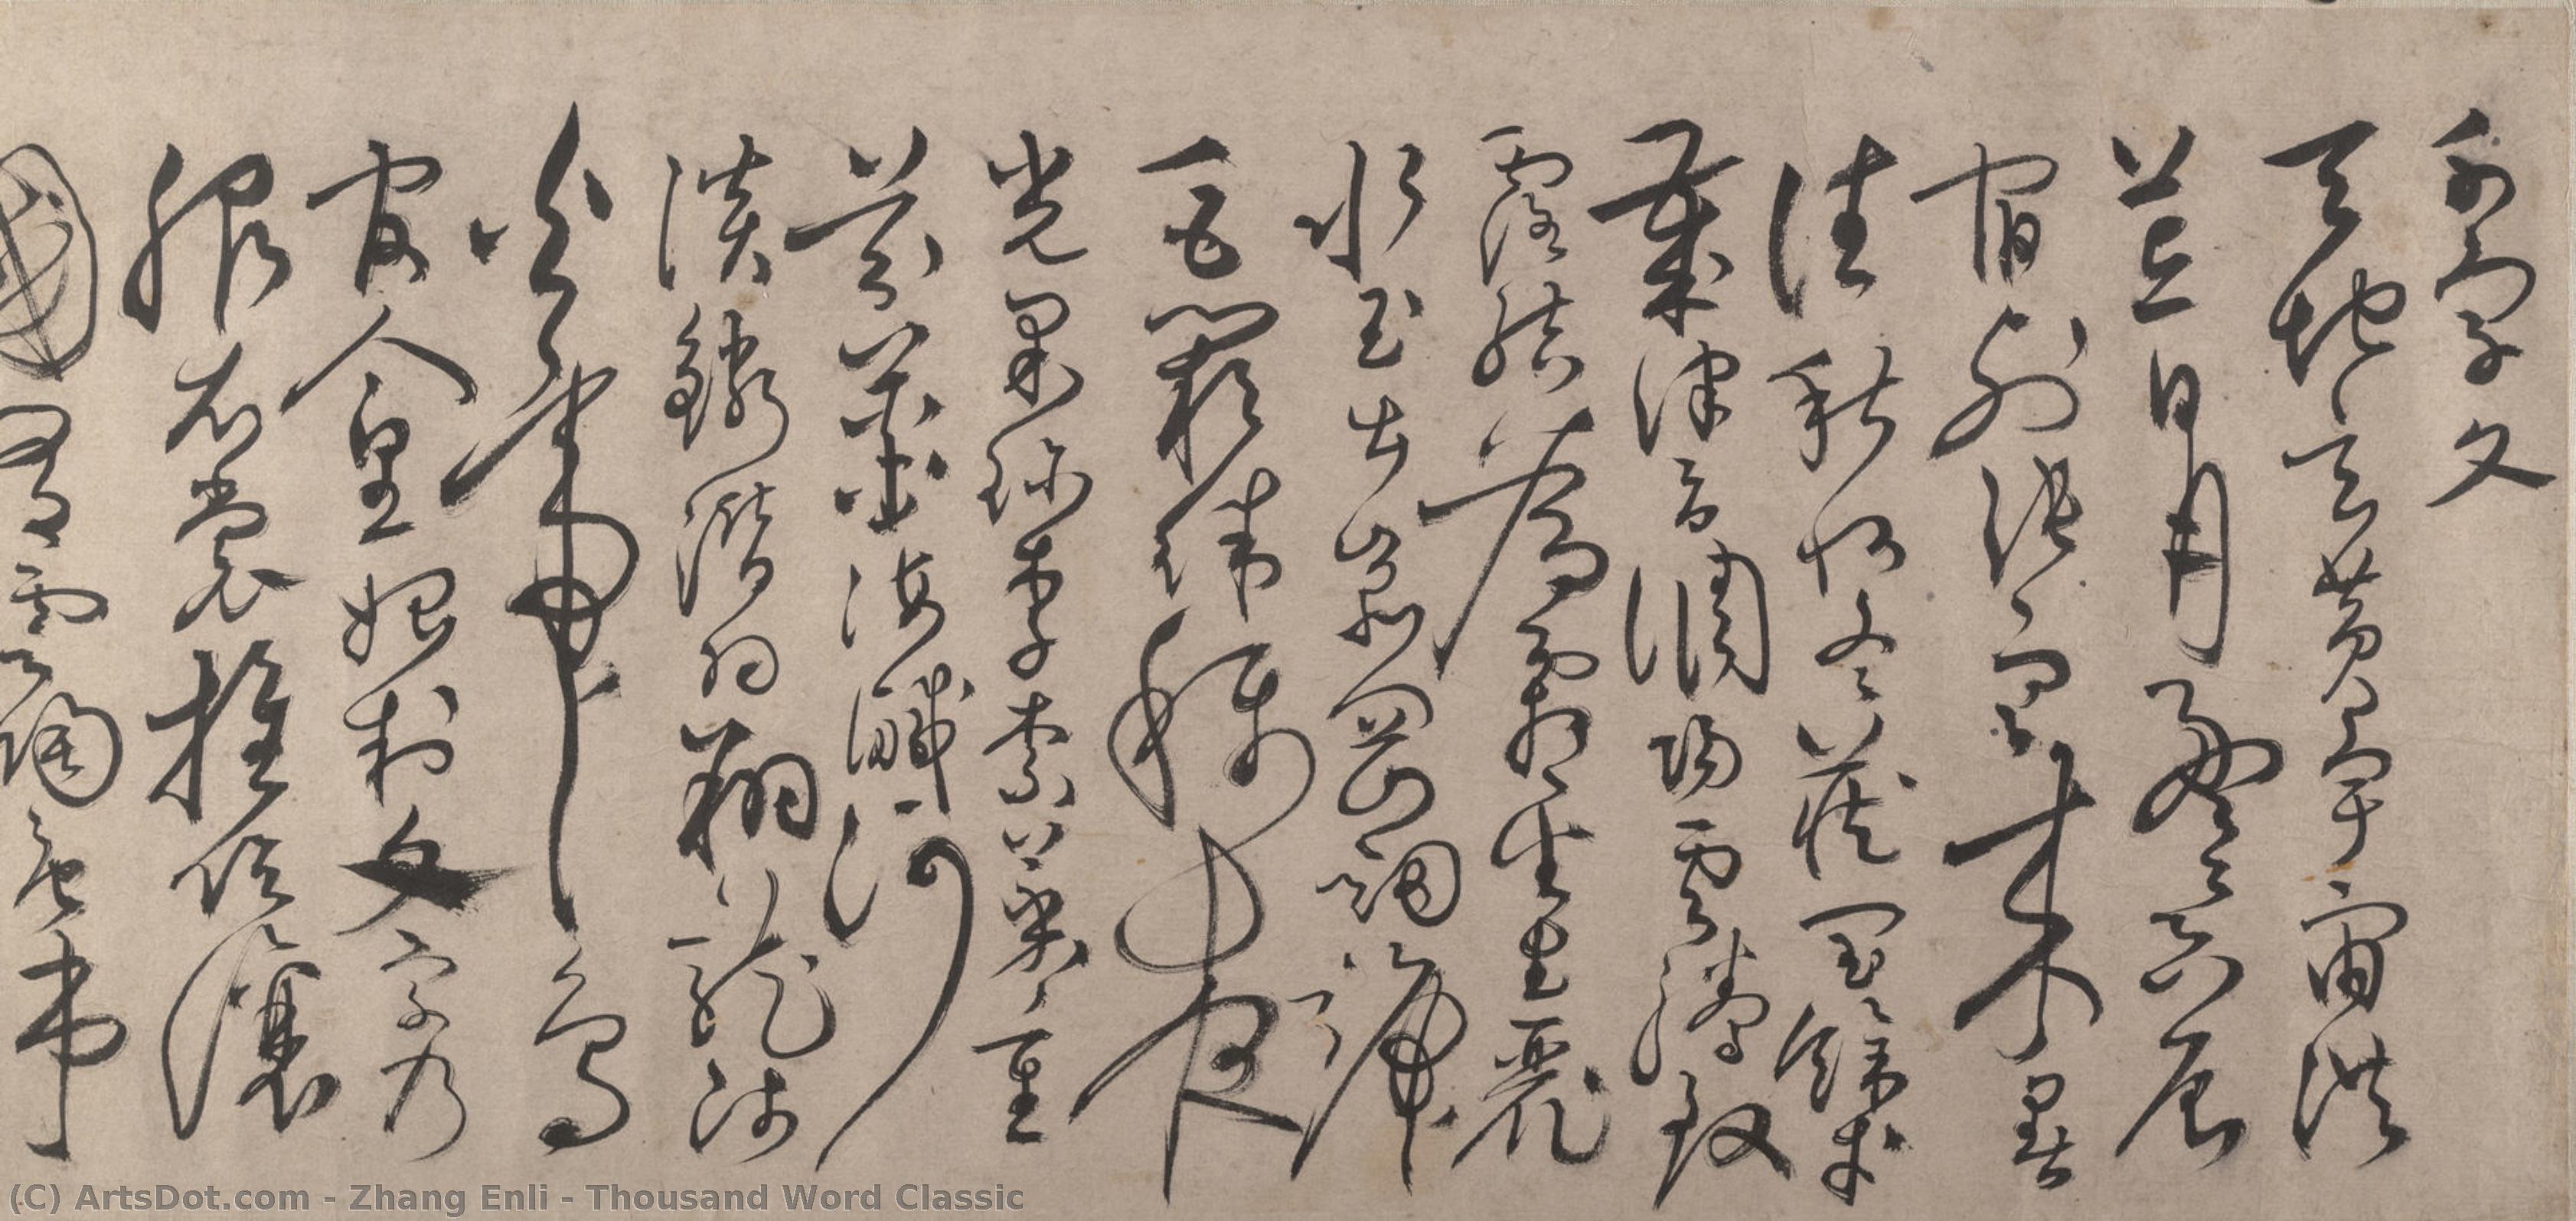 千字文
天地玄黄宇宙洪
荒日月盈昃辰
宿列張寒来暑
往秋收冬藏閏餘成
歲律調陽雲騰致
露結為霜金生麗
水玉出崑岡劍號
巨闕珠稱夜
光果珍李柰菜重
芥薑海鹹河
淡鱗潜羽翔龍師
火帝鳥
官人皇始制文字乃
服衣裳推位讓
國有虞陶唐弔
(C) ArtsDot.com - Zhang Enli - Thousand Word Classic